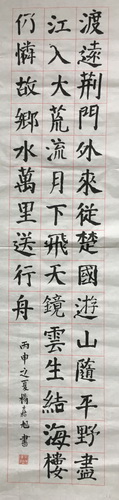 渡遠荆門外來從楚國遊山隨平野盡
江入大荒流月下飛天鏡雲生結海樓
仍憐故鄉水萬里送行舟
丙申之夏 嘉旭書